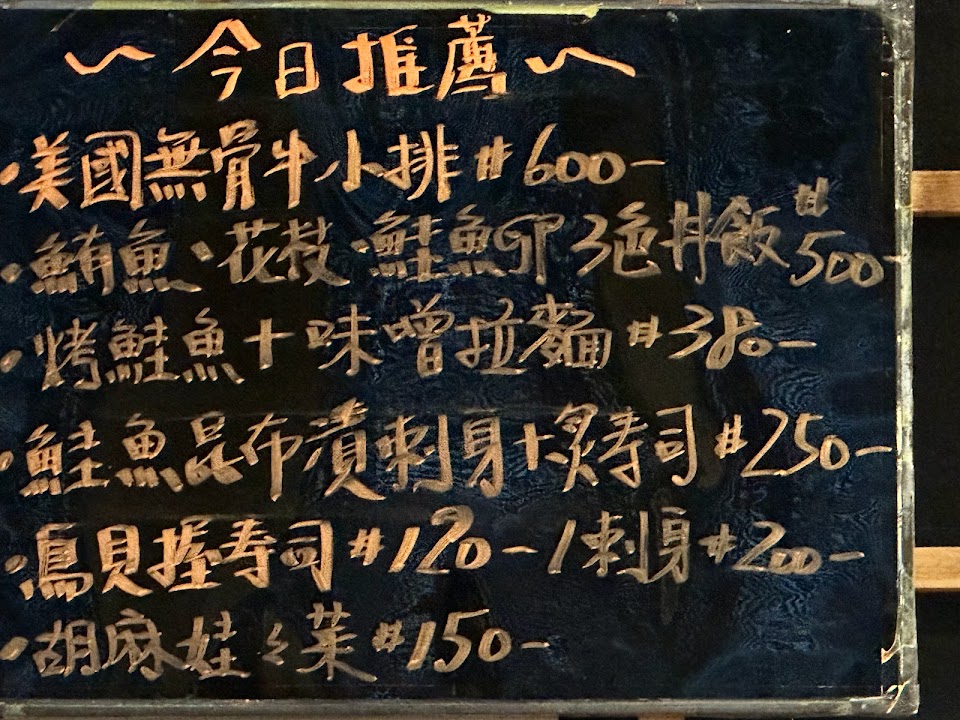 ~今日推薦~
·美國無骨牛小排#600-
·鮪魚、花枝·鮭魚卵3色丼飯#500-
·烤鮭魚+味噌拉麵#380-
·鮭魚昆布漬刺身+炙寿司#250-
·鳥貝握寿司#120-/刺身#200-
·胡麻娃々菜#150-